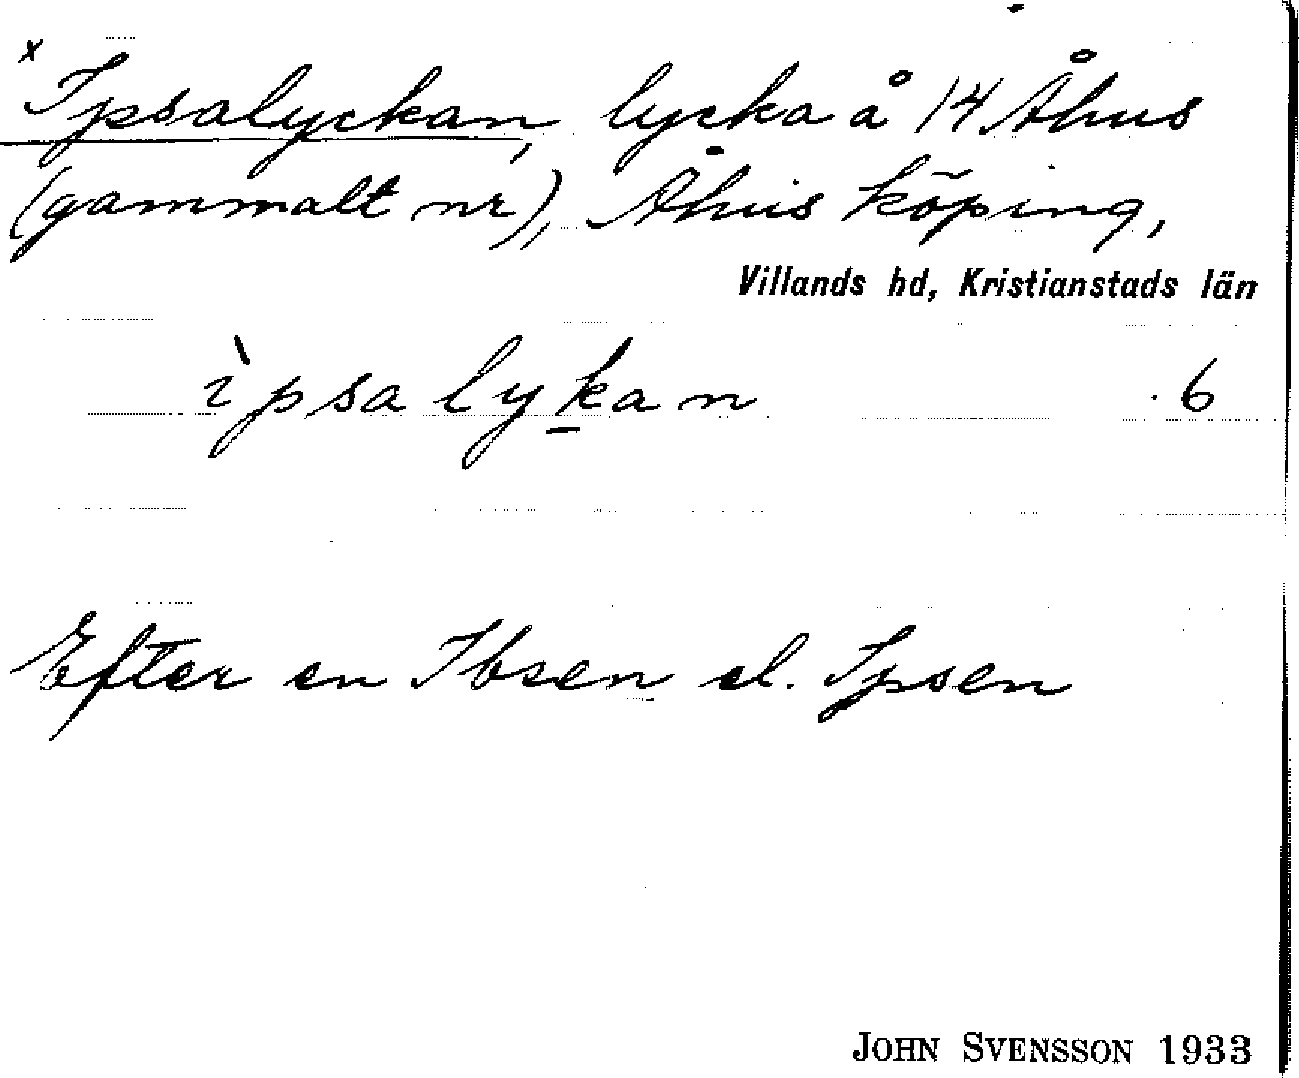 x Ipsalyckan, lycka å 14 Åhus
(gammalt nr), Åhus köping,
Villands hd, Kristianstads län
ìpsalyḵan 6
Efter en Ibsen el. Ipsen
JOHN SVENSSON 1933